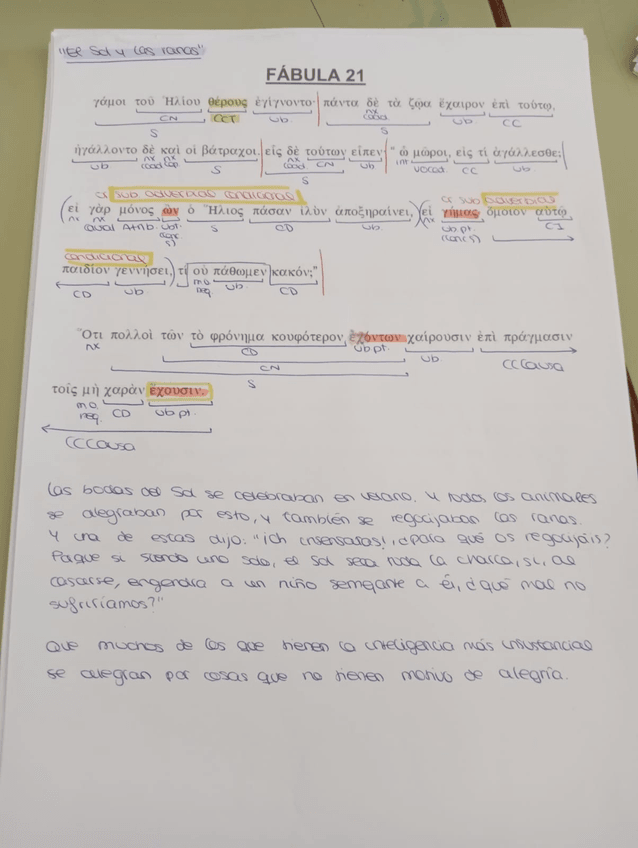 "El Sol y las ranas"
FÁBULA 21
γάμοι τοῦ Ἡλίου θέρους ἐγίγνοντο· πάντα δὲ τὰ ζῷα ἔχαιρον ἐπὶ τούτῳ,
CN CCT vb. nx coord vb. CC
S S
ἠγάλλοντο δὲ καὶ οἱ βάτραχοι. εἷς δὲ τούτων εἶπεν· "ὦ μῶροι, εἰς τί ἀγάλλεσθε;
vb nx coord nx cop S nx coord CN vb int vocat. CC vb
S
or sub adverbial condicional or sub adverbial
(εἰ γὰρ μόνος ὢν ὁ Ἥλιος πᾶσαν ἰλὺν ἀποξηραίνει,)(εἰ γήμας ὅμοιον αὐτῷ
nx nx causal Atrib. vbpt. (conc S) S CD vb nx vb pt (conc S) CI
condicional
παιδίον γεννήσει,) τί οὐ πάθωμεν κακόν;"
CD vb mo neg. vb CD
Ὅτι πολλοὶ τῶν τὸ φρόνημα κουφότερον ἐχόντων χαίρουσιν ἐπὶ πράγμασιν
nx CD vb pt. vb. CCCausa
CN
S
τοῖς μὴ χαρὰν ἔχουσιν.
mo. neg. CD vb pt.
CCCausa
Las bodas del Sol se celebraban en verano. Y todos los animales
se alegraban por esto, y también se regocijaban las ranas.
Y una de estas dijo: "¡Oh insensatos!, ¿para qué os regocijáis?
Porque si siendo uno solo, el Sol seca toda la charca, si, al
casarse, engendra a un niño semejante a él, ¿qué mal no
sufriríamos?"
Que muchos de los que tienen la inteligencia más insustancial
se alegran por cosas que no tienen motivo de alegría.